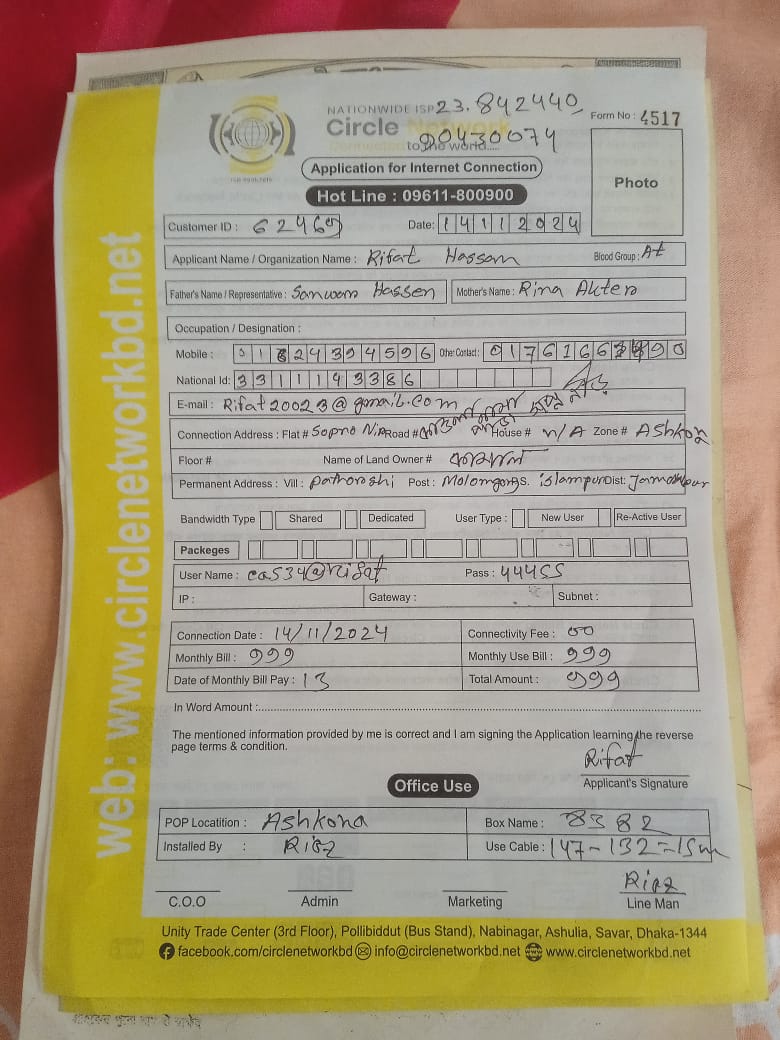 NATIONWIDE ISP 23.842440
Circle Network
90430074
to the world.....
Form No : 4517
Application for Internet Connection
Photo
Hot Line : 09611-800900
Customer ID : 62469 Date: 14112024
Applicant Name / Organization Name : Rifat Hassam Blood Group : A+
Father's Name / Representative : Hassen Mother's Name : Rina Akter
Occupation / Designation :
Mobile : Other Contact :
National Id: 3311143386
E-mail : Rifat20023@gmail.com
Connection Address : Flat # Sopno Road # House # N/A Zone #
Floor # Name of Land Owner #
Permanent Address : Vill : Pathorshi Post : P.S. islampur Dist: Jamalpur
Bandwidth Type Shared Dedicated User Type : New User Re-Active User
Packeges
User Name : cas34@rifat Pass : 444SS
IP : Gateway : Subnet :
Connection Date : 14/11/2024 Connectivity Fee : 00
Monthly Bill : 999 Monthly Use Bill : 999
Date of Monthly Bill Pay : 13 Total Amount : 999
In Word Amount :
The mentioned information provided by me is correct and I am signing the Application learning the reverse
page terms & condition.
Rifat
Applicant's Signature
Office Use
POP Locatition : Ashkona Box Name : 8382
Installed By : Use Cable : 147-132=15m
Riaz
C.O.O Admin Marketing Line Man
Unity Trade Center (3rd Floor), Pollibiddut (Bus Stand), Nabinagar, Ashulia, Savar, Dhaka-1344
facebook.com/circlenetworkbd info@circlenetworkbd.net www.circlenetworkbd.net
web: www.circlenetworkbd.net